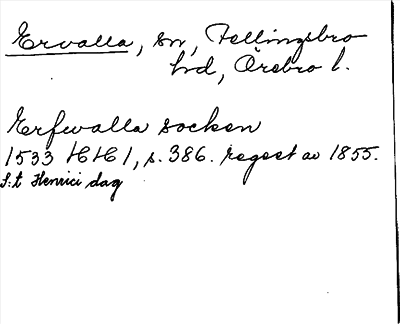 Ervalla, sn, Fellingsbro
hd, Örebro l.
Erfwalla socken
1533 HH 1, s. 386. regest av 1855.
S:t Henrici dag